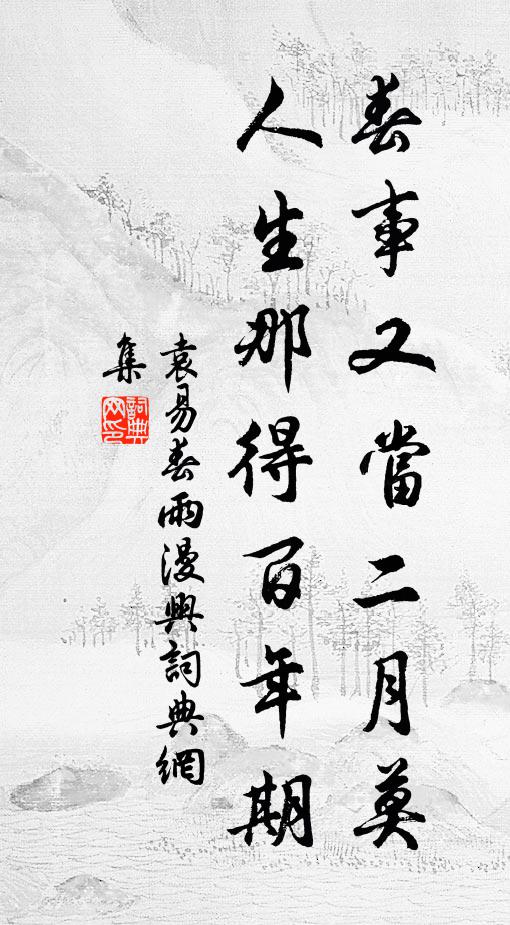 春事又當二月莫
人生那得百年期
袁易春雨漫興詞典網
集
詞典
网印